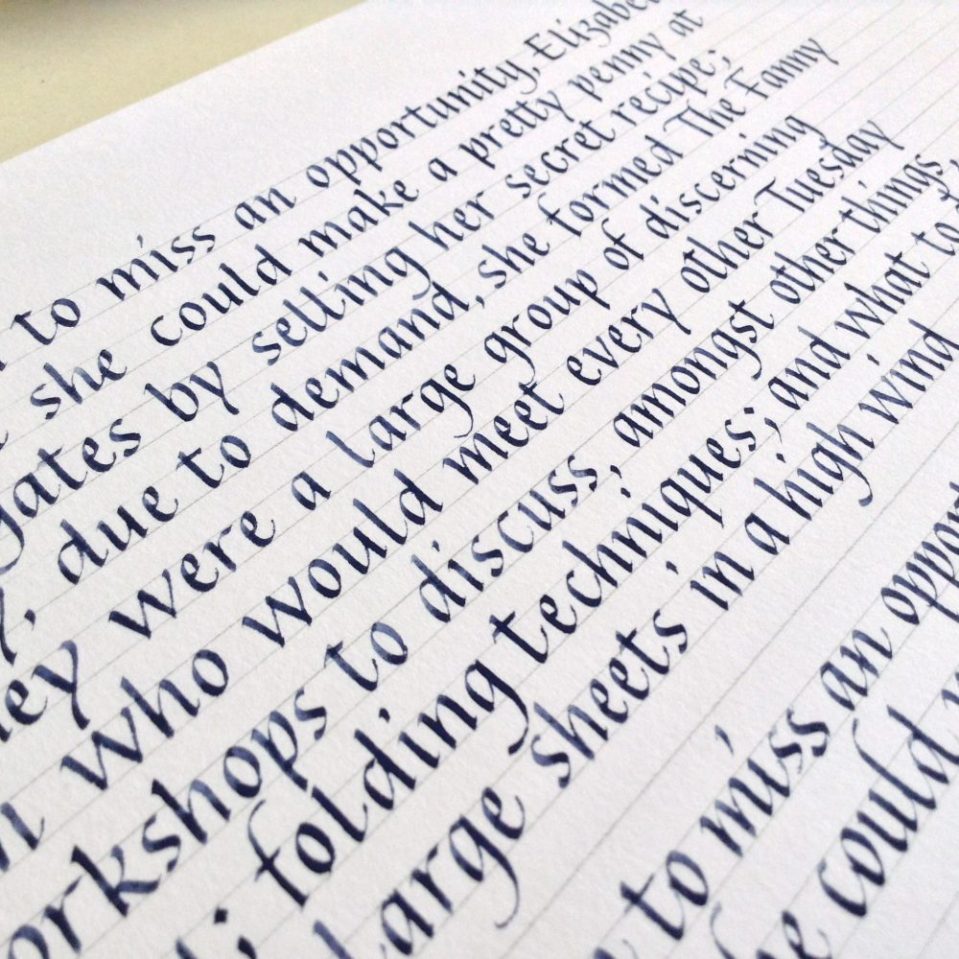 to miss an opportunity, Elizabe
she could make a pretty penny at
gates by selling her secret recipe;
due to demand, she formed The Fanny
hey were a large group of discerning
who would meet every other Tuesday
orkshops to discuss, amongst other things,
; folding techniques; and what to
large sheets in a high wind
to miss an oppor
he could